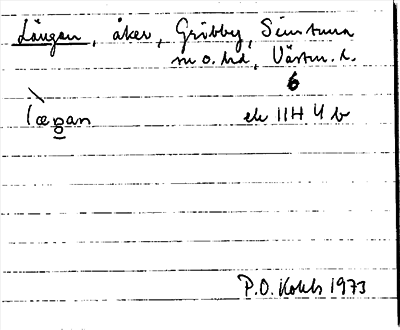 Längan, åker, Gröbby, Simtuna
sn o. hd, Västm. l.
6
læŋan ek 11H 4 b
P.O. Kohls 1973